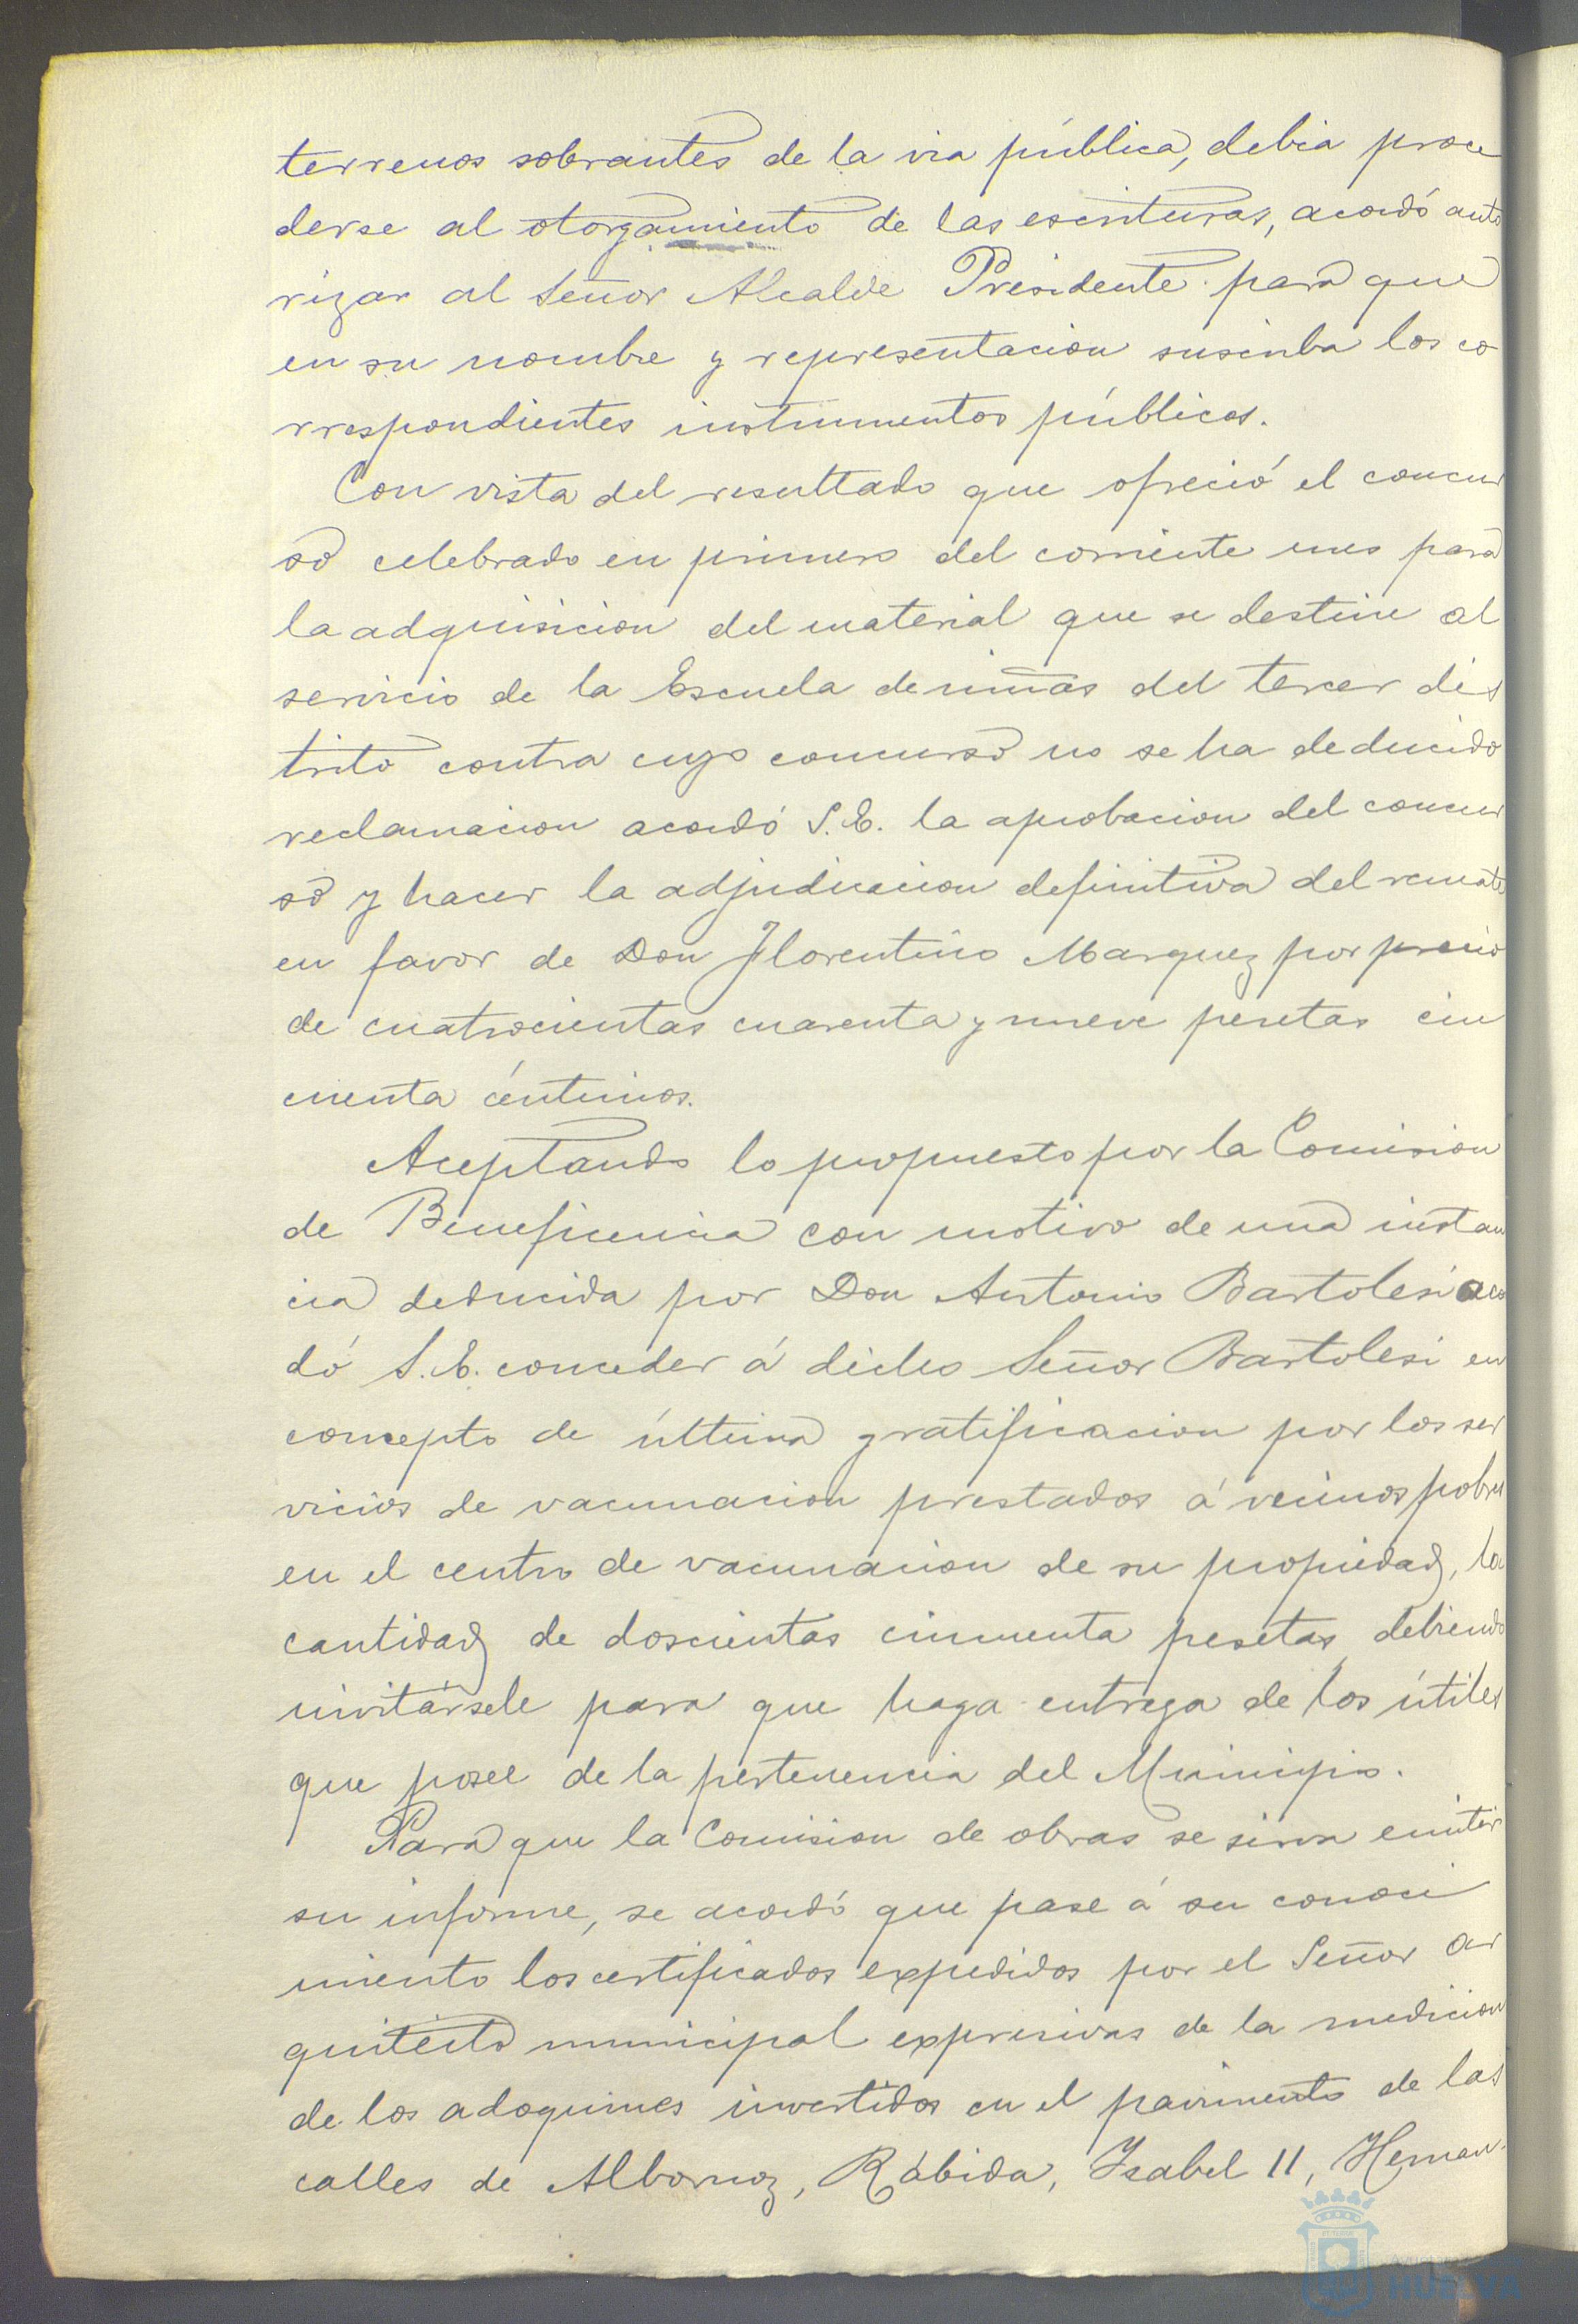 terrenos sobrantes de la via pública, debia proce
derse al otorgamiento de las escrituras, acordó auto
rizar al Señor Alcalde Presidente para que
en su nombre y representacion suscriba los co
rrespondientes instrumentos públicos.
Con vista del resultado que ofreció el concur
so celebrado en primero del corriente mes para
la adquisicion del material que se destine al
servicio de la Escuela de niñas del tercer dis
trito contra cuyo concurso no se ha deducido
reclamacion acordó S.E. la aprobacion del concur
so y hacer la adjudicacion definitiva del remate
en favor de Don Florentino Marquez por precio
de cuatrocientas cuarenta y nueve pesetas cin
cuenta céntimos.
Aceptando lo propuesto por la Comision
de Beneficencia con motivo de una instan
cia deducida por Don Antonio Bartolesi acor
dó S.E. conceder á dicho Señor Bartolesi en
concepto de última gratificacion por los ser
vicios de vacunacion prestados á vecinos pobres
en el centro de vacunacion de su propiedad, la
cantidad de doscientas cincuenta pesetas, debiendo
invitársele para que haga entrega de los útiles
que posee de la pertenencia del Municipio.
Para que la Comision de obras se sirva emitir
su informe, se acordó que pase á su conoci
miento los certificados expedidos por el Señor Ar
quitecto municipal expresivas de la medicion
de los adoquines invertidos en el pavimento de las
calles de Albornoz, Rábida, Isabel II, Hernan-
HUELVA